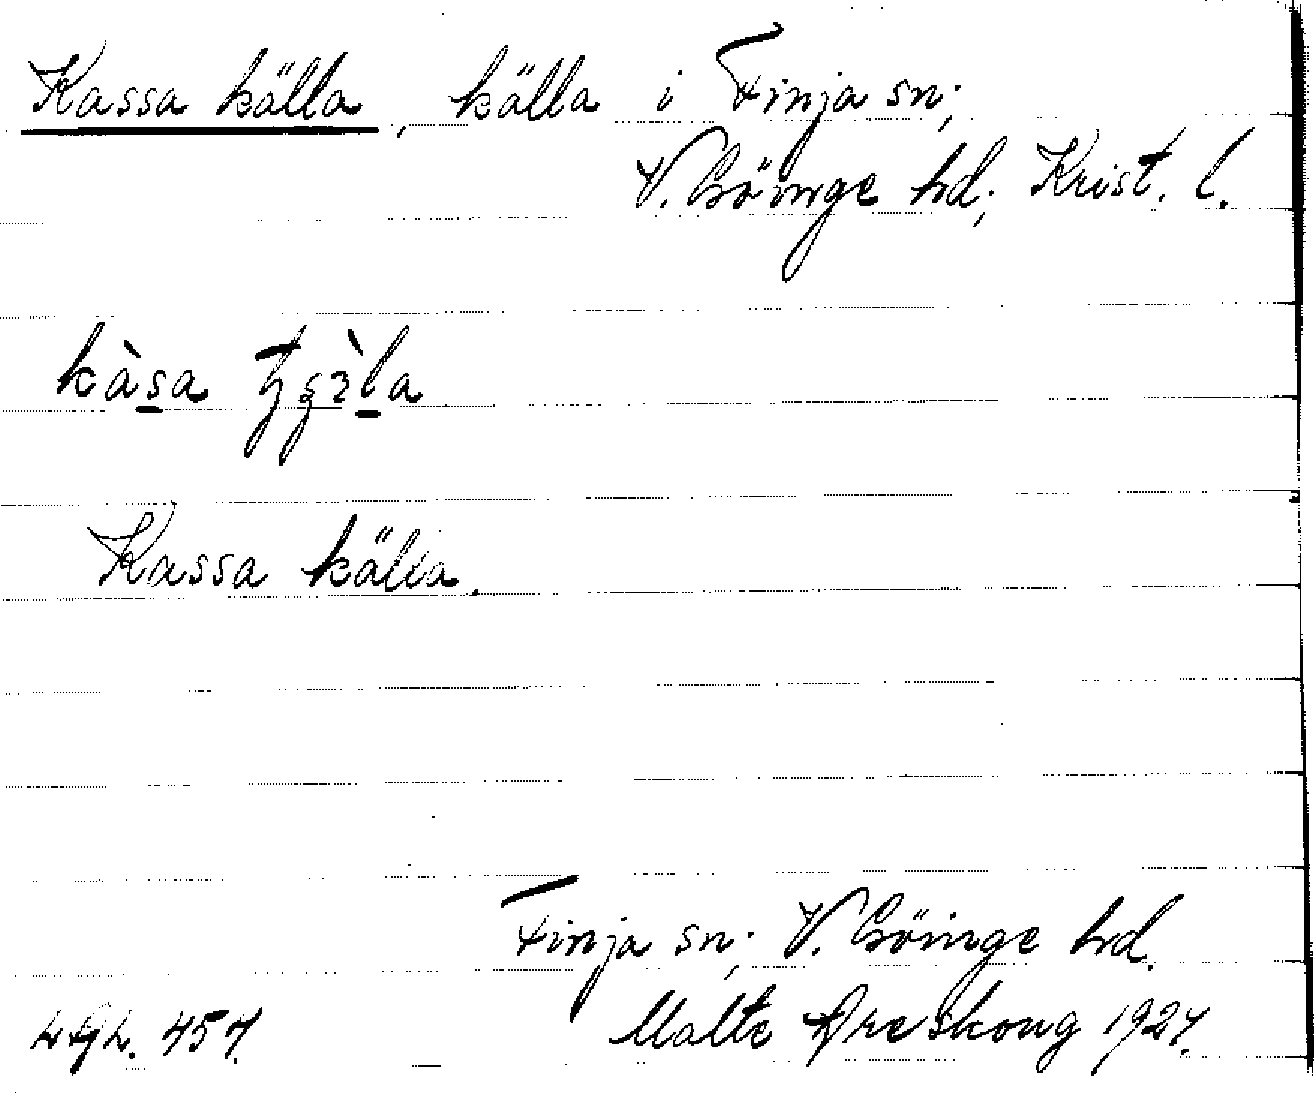 Kassa källa, källa i Finja sn;
V. Göinge hd; Krist. l.
kàsa
Kassa källa.
Finja sn; V. Göinge hd.
454. Malte Areskoug 1927.